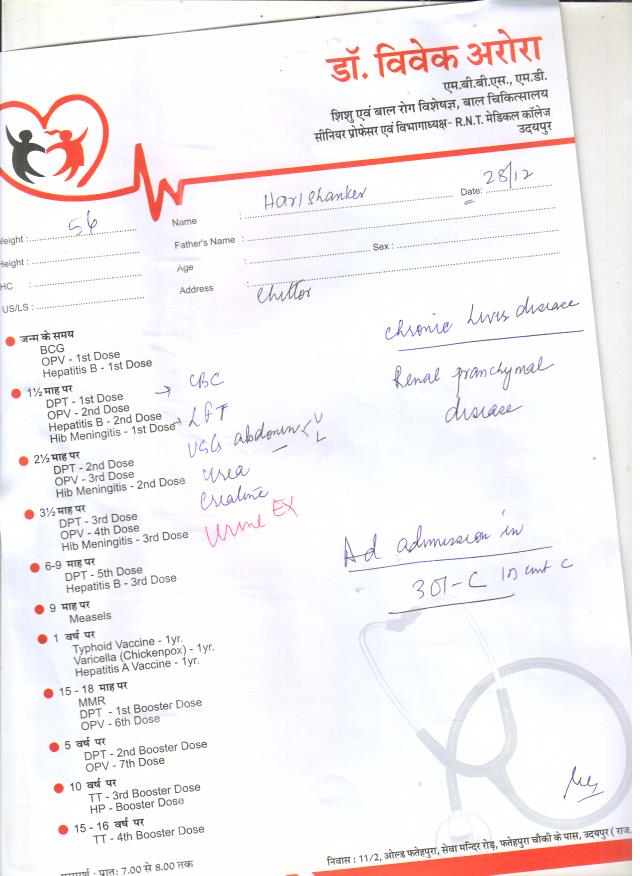 डॉ. विवेक अरोरा
एम.बी.बी.एस., एम.डी.
शिशु एवं बाल रोग विशेषज्ञ, बाल चिकित्सालय
सीनियर प्रोफेसर एवं विभागाध्यक्ष- R.N.T. मेडिकल कॉलेज
उदयपुर
Weight : 56
Height :
HC :
US/LS :
Name : Harishanker Date: 28/12
Father's Name :
Age : Sex :
Address Chittor
जन्म के समय
BCG
OPV - 1st Dose
Hepatitis B - 1st Dose
1½ माह पर
DPT - 1st Dose
OPV - 2nd Dose
Hepatitis B - 2nd Dose
Hib Meningitis - 1st Dose
2½ माह पर
DPT - 2nd Dose
OPV - 3rd Dose
Hib Meningitis - 2nd Dose
3½ माह पर
DPT - 3rd Dose
OPV - 4th Dose
Hib Meningitis - 3rd Dose
6-9 माह पर
DPT - 5th Dose
Hepatitis B - 3rd Dose
9 माह पर
Measels
1 वर्ष पर
Typhoid Vaccine - 1yr.
Varicella (Chickenpox) - 1yr.
Hepatitis A Vaccine - 1yr.
15 - 18 माह पर
MMR
DPT - 1st Booster Dose
OPV - 6th Dose
5 वर्ष पर
DPT - 2nd Booster Dose
OPV - 7th Dose
10 वर्ष पर
TT - 3rd Booster Dose
HP - Booster Dose
15 - 16 वर्ष पर
TT - 4th Booster Dose
→ CBC
→ LFT
USG abdomen < U
L
Urea
Creatine
Urine EX
Chronic Liver disease
Renal pranchymal
disease
Ad admission in
301-C in unit C
प्रातः 7.00 से 8.00 तक
निवास : 11/2, ओल्ड फतेहपुरा, सेवा मन्दिर रोड़, फतेहपुरा चौकी के पास, उदयपुर ( राज.